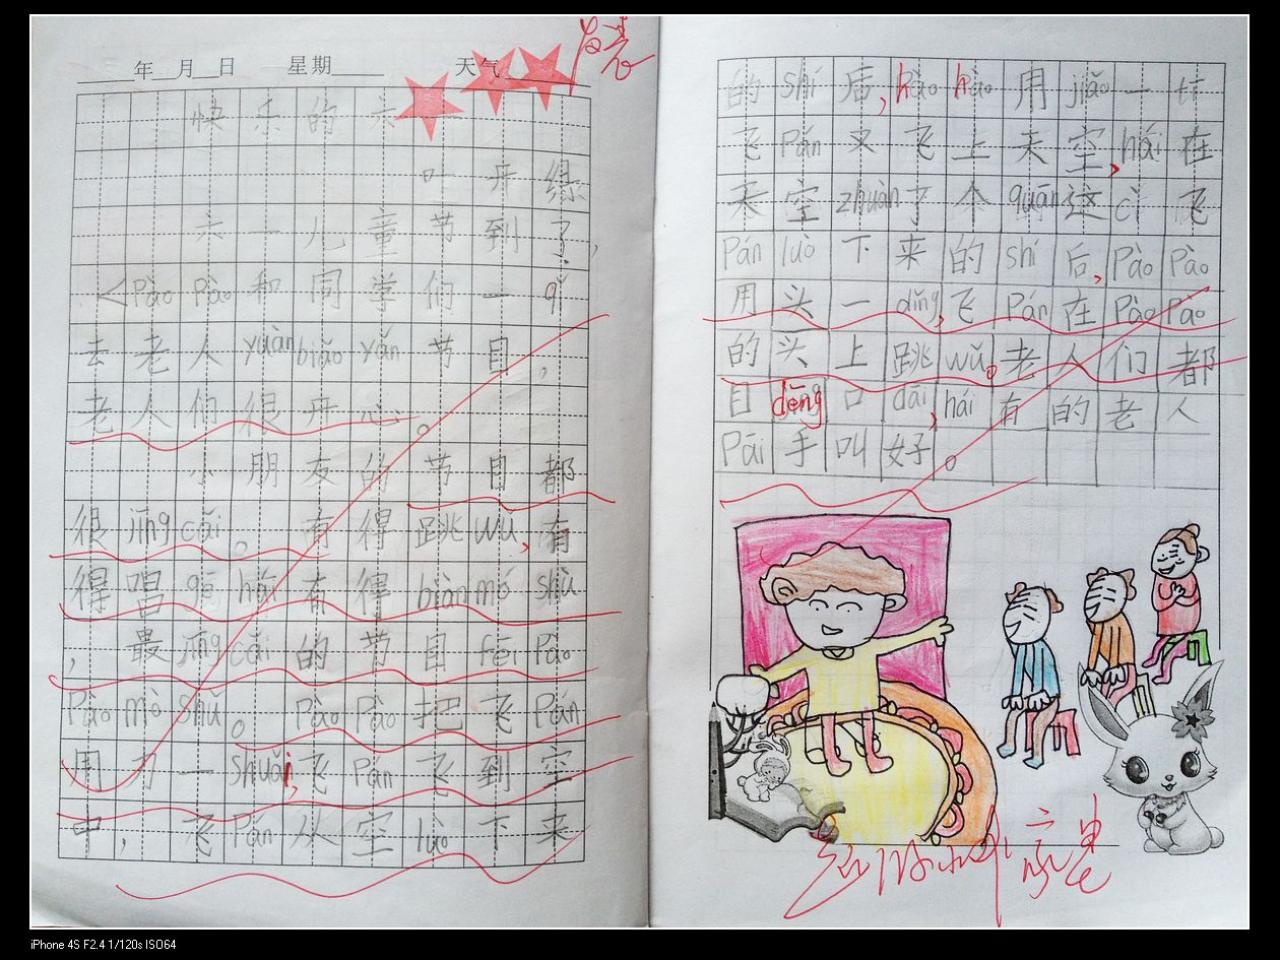 年 月 日 星期 天气
快乐的六
叶开绿
六一儿童节到了,
Pào Pào和同学们一qǐ
去老人yuàn biǎo yǎn节目,
老人们很开心。
小朋友的节目都
很jīng cǎi。有得跳wǔ,有
得唱gē hái有得biàn mó shù
,最jīng cǎi的节目fēi Pào
Pào mò shǔ。Pào Pào把飞Pán
用力一Shuǎi,飞Pán飞到空
中,飞Pán从空luò下来
的Shí后,Pào Pào用jiǎo一
飞Pán又飞上天空,hái在
天空zhuàn了个quān这cì飞
Pán luò下来的shí后,Pào Pào
用头一dǐng,飞Pán在Pào Pào
的头上跳wǔ。老人们都
目dèng口dāi,hái有的老人
Pāi手叫好。
iPhone 4S F2.4 1/120s ISO64